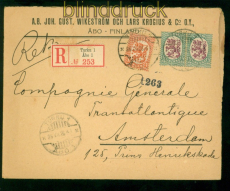 A.B. JOH. GUST. WIKESTRÖM OCH LARS KROGIUS & C:o O.Y.
ÅBO - FINLAND
Rek.
R Turku 1
Åbo 1
№ 253
263
Compagnie Generale
Transatlantique
Amsterdam
125, Prins Hendrikkade